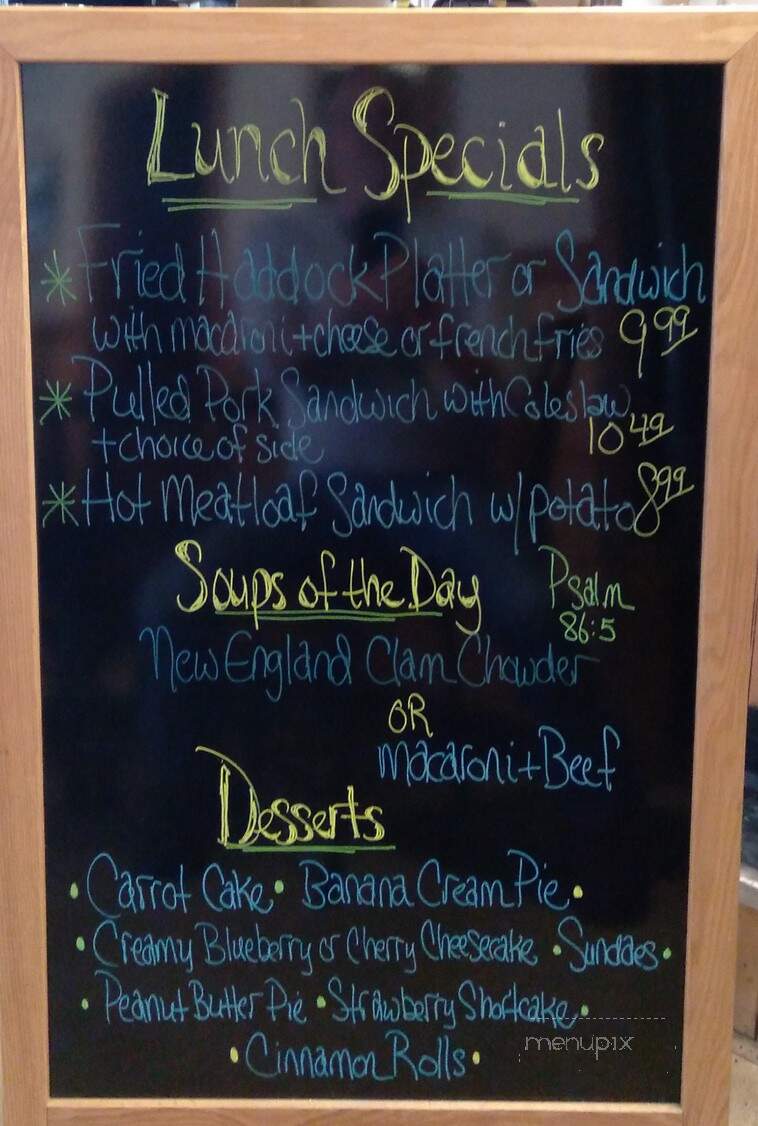 Lunch Specials
* Fried Haddock Platter or Sandwich
with macaroni + cheese or french fries 9.99
* Pulled Pork Sandwich with Coleslaw
+ choice of side 10.49
* Hot Meatloaf Sandwich w/potato 8.99
Soups of the Day
Psalm
86:5
New England Clam Chowder
OR
macaroni + Beef
Desserts
• Carrot Cake • Banana Cream Pie •
• Creamy Blueberry or Cherry Cheesecake • Sundaes •
• Peanut Butter Pie • Strawberry Shortcake •
• Cinnamon Rolls •
menupix